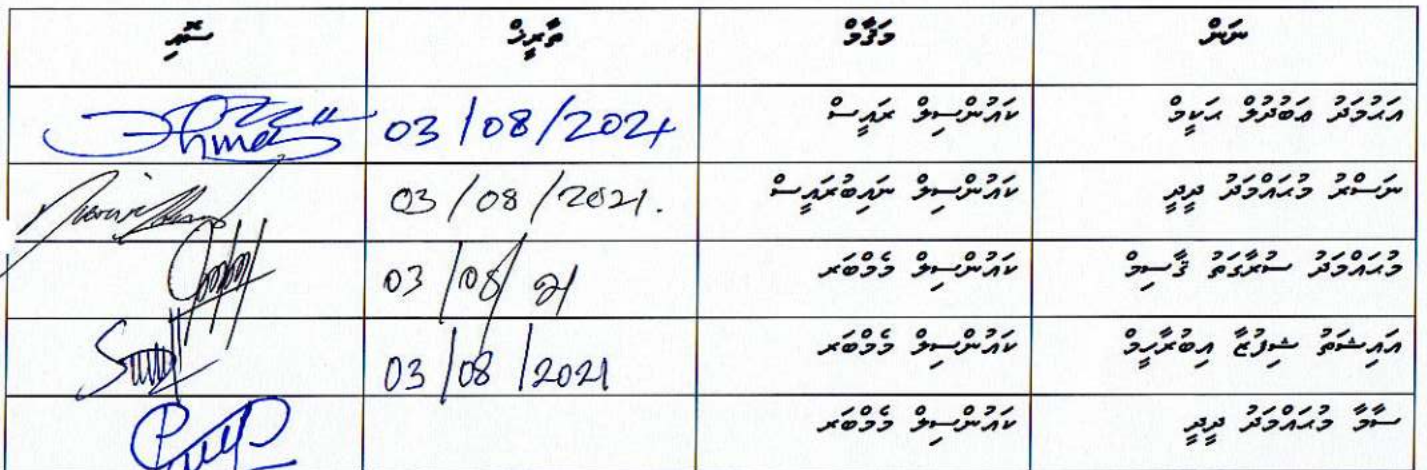 ނަން މަޤާމް ތާރީޚް ސޮއި
އަޙުމަދު ޢަބުދުލް ޙަކީމް ކައުންސިލް ރައީސް 03/08/2021
ނަސްރު މުޙައްމަދު ދީދީ ކައުންސިލް ނައިބުރައީސް 03/08/2021.
މުޙައްމަދު ސުރާގަތު ޤާސިމް ކައުންސިލް މެމްބަރ 03/08/21
އައިޝަތު ޝިފުޒާ އިބުރާހީމް ކައުންސިލް މެމްބަރ 03/08/2021
ސާމާ މުޙައްމަދު ދީދީ ކައުންސިލް މެމްބަރ